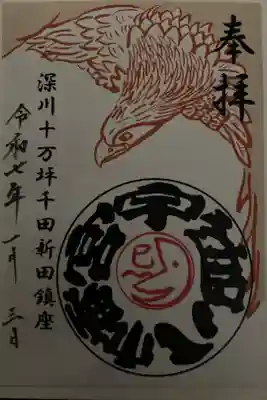 奉拝
深川十万坪千田新田鎮座
宇迦八幡宮
令和七年一月三日